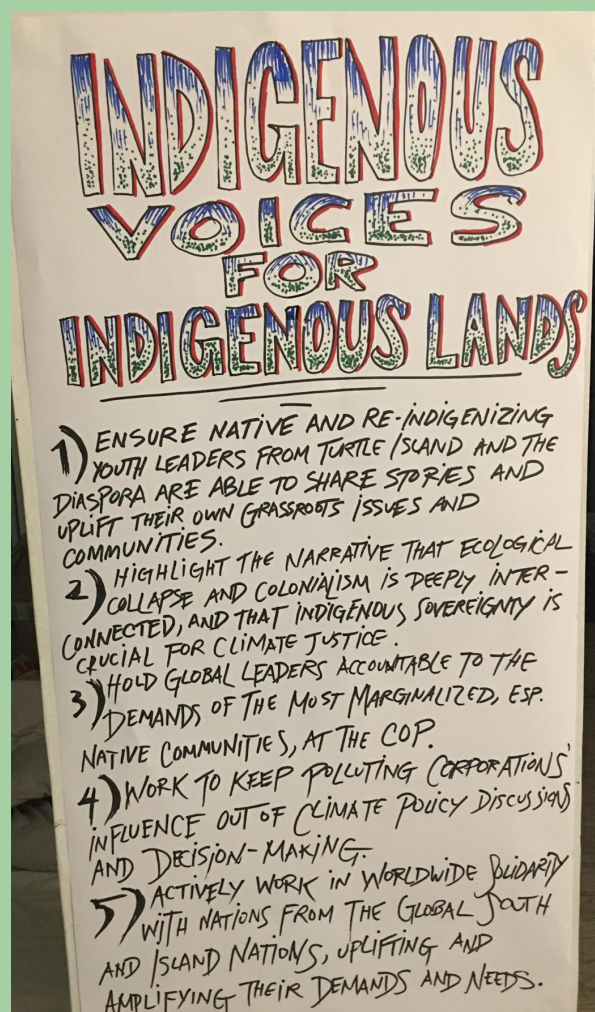 INDIGENOUS
VOICES
FOR
INDIGENOUS LANDS
1) ENSURE NATIVE AND RE-INDIGENIZING
YOUTH LEADERS FROM TURTLE ISLAND AND THE
DIASPORA ARE ABLE TO SHARE STORIES AND
UPLIFT THEIR OWN GRASSROOTS ISSUES AND
COMMUNITIES.
2) HIGHLIGHT THE NARRATIVE THAT ECOLOGICAL
COLLAPSE AND COLONIALISM IS DEEPLY INTER-
CONNECTED, AND THAT INDIGENOUS SOVEREIGNTY IS
CRUCIAL FOR CLIMATE JUSTICE.
3) HOLD GLOBAL LEADERS ACCOUNTABLE TO THE
DEMANDS OF THE MOST MARGINALIZED, ESP.
NATIVE COMMUNITIES, AT THE COP.
4) WORK TO KEEP POLLUTING CORPORATIONS'
INFLUENCE OUT OF CLIMATE POLICY DISCUSSIONS
AND DECISION-MAKING.
5) ACTIVELY WORK IN WORLDWIDE SOLIDARITY
WITH NATIONS FROM THE GLOBAL SOUTH
AND ISLAND NATIONS, UPLIFTING AND
AMPLIFYING THEIR DEMANDS AND NEEDS.